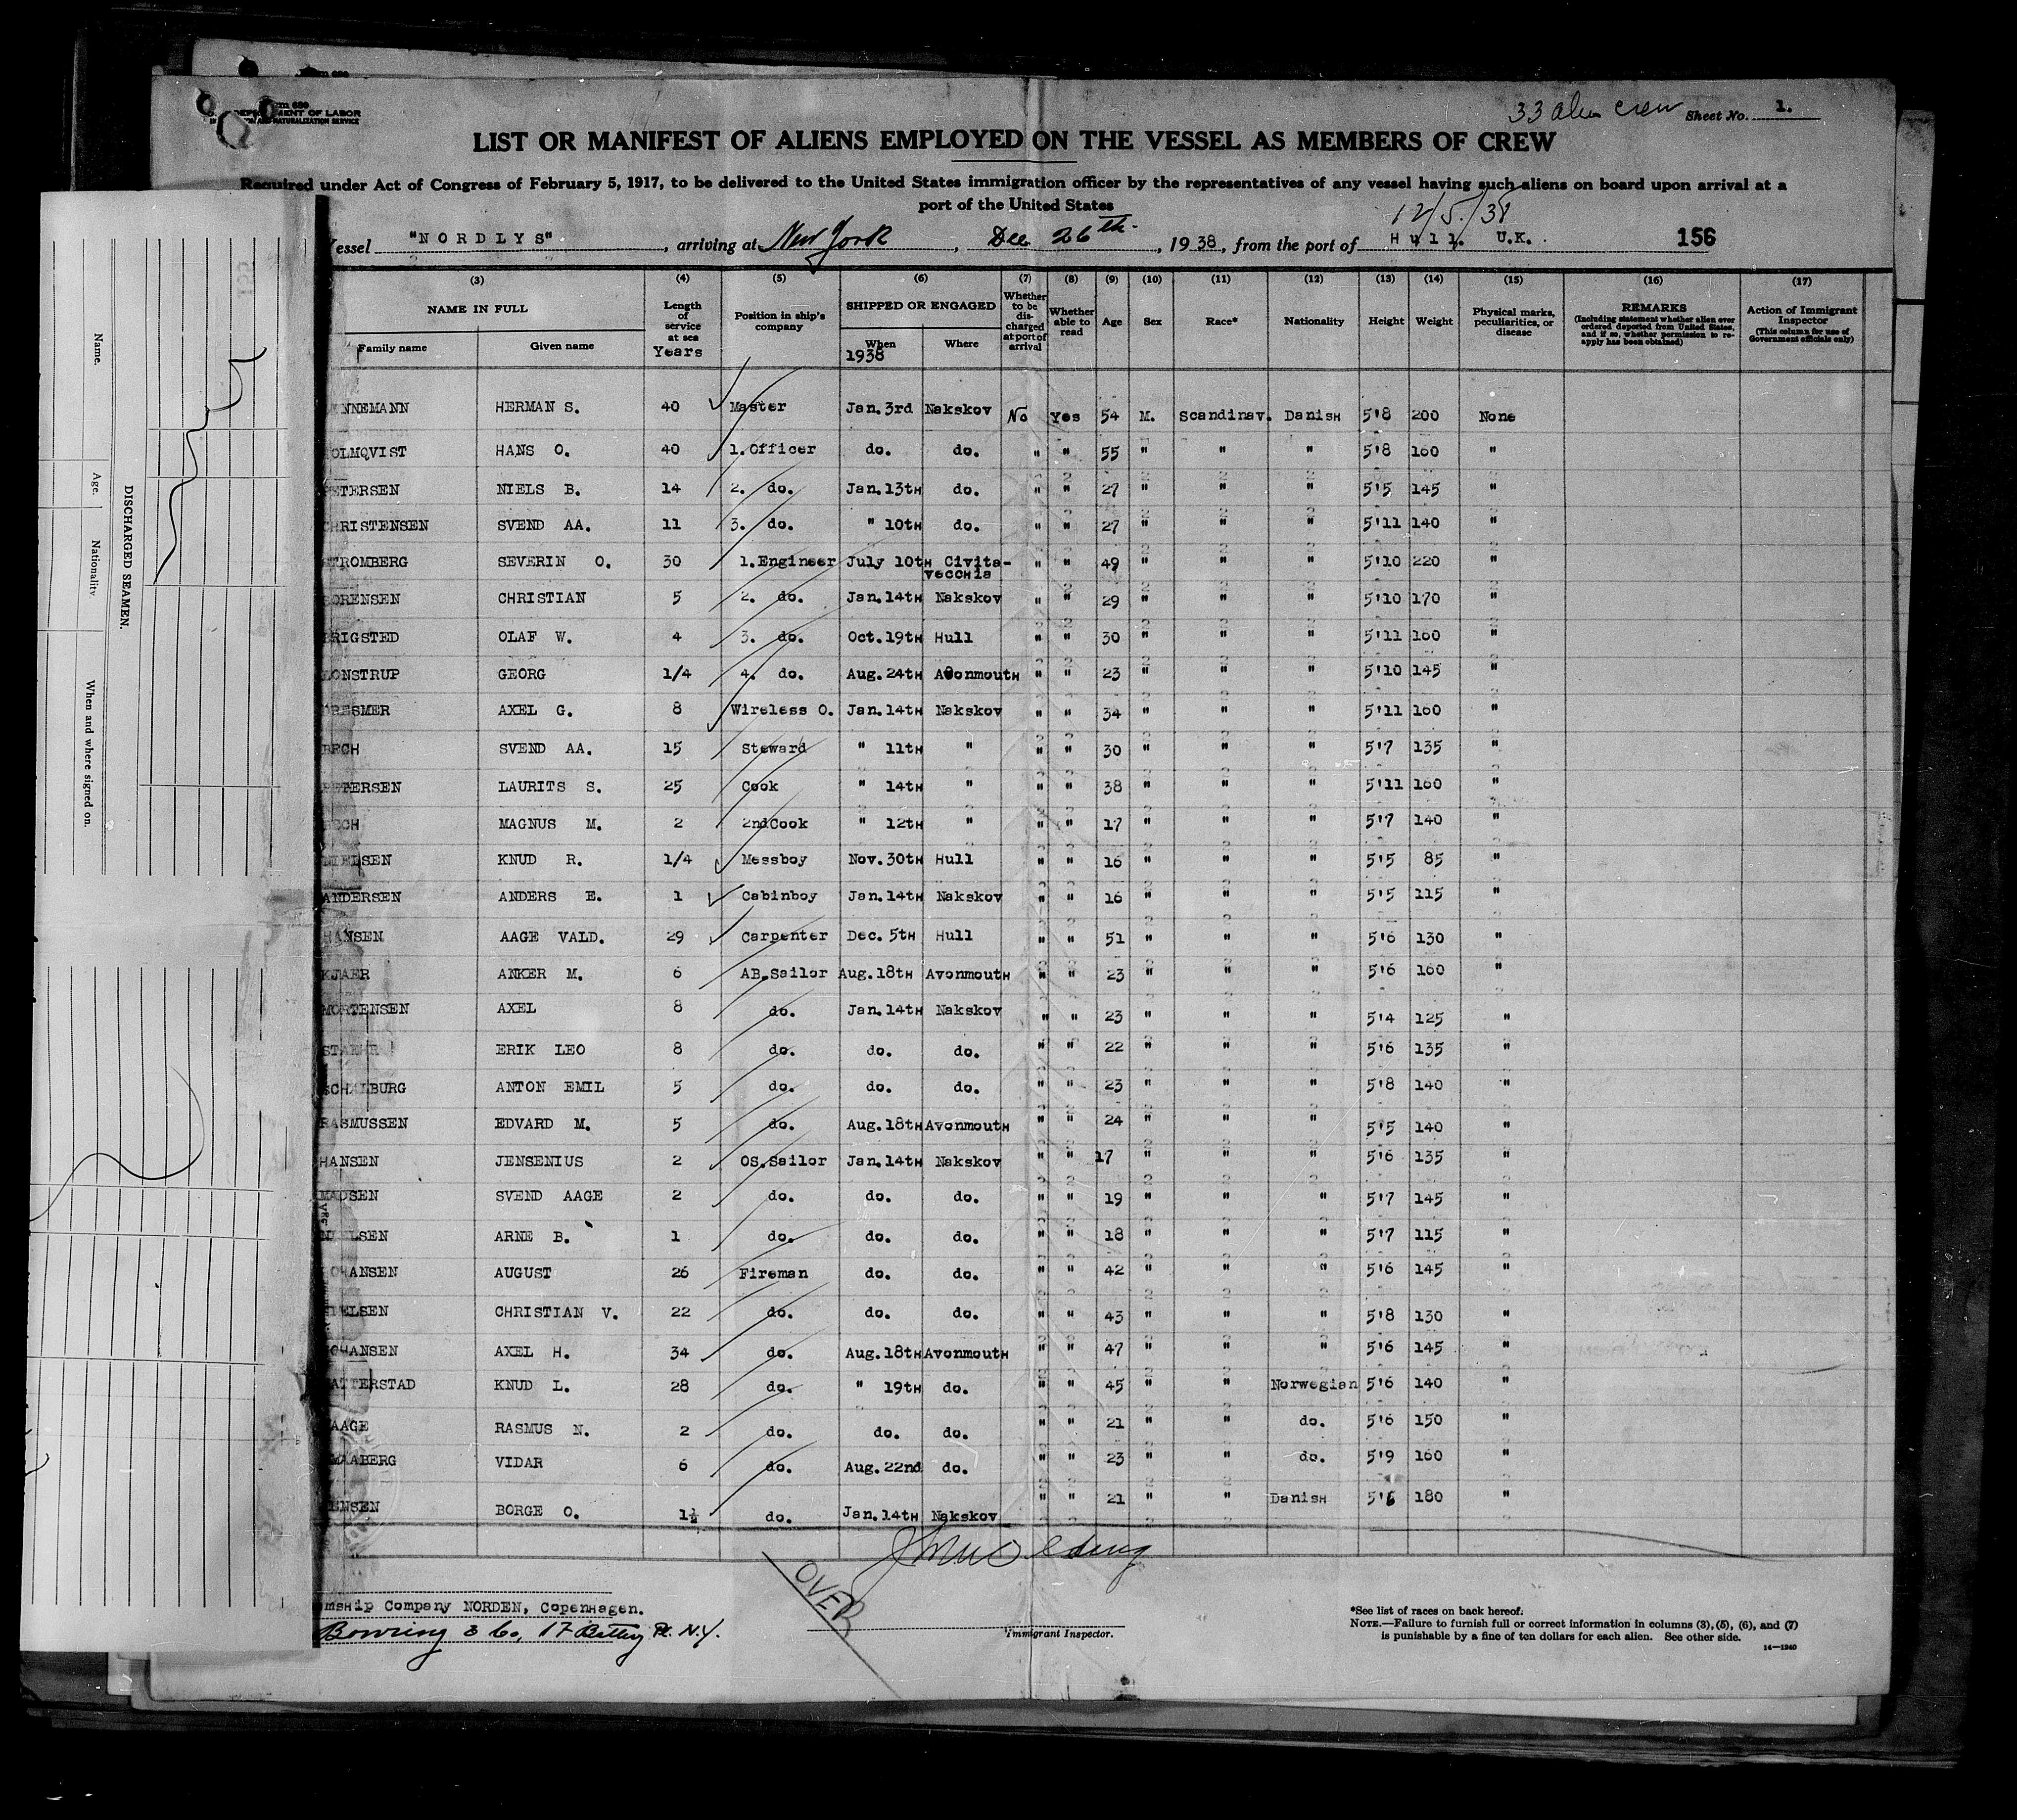 33 alien crew Sheet No. 1.
DEPARTMENT OF LABOR
LIST OR MANIFEST OF ALIENS EMPLOYED ON THE VESSEL AS MEMBERS OF CREW
Required under Act of Congress of February 5, 1917, to be delivered to the United States immigration officer by the representatives of any vessel having such aliens on board upon arrival at a
port of the United States
12/5/38
Vessel "NORDLYS", arriving at New York, Dec 26th, 1938, from the port of Hull. U.K. 156
(3) (4) (5) (6) (7) (8) (9) (10) (11) (12) (13) (14) (15) (16) (17)
NAME IN FULL Family name Given name Length of service at sea Years Position in ship's company SHIPPED OR ENGAGED When 1938 Where Whether to be discharged at port of arrival Whether able to read Age Sex Race* Nationality Height Weight Physical marks, peculiarities, or disease REMARKS (Including statement whether alien ever ordered deported from United States, and if so, whether permission to re-apply has been obtained) Action of Immigrant Inspector (This column for use of Government officials only)
NNEMANN HERMAN S. 40 Master Jan. 3rd Nakskov No Yes 54 M. Scandinav. Danish 5'8 200 None
OLMQVIST HANS O. 40 1. Officer do. do. " " 55 " " " 5'8 160 "
PETERSEN NIELS B. 14 2. do. Jan. 13th do. " " 27 " " " 5'5 145 "
CHRISTENSEN SVEND AA. 11 3. do. " 10th do. " " 27 " " " 5'11 140 "
STROMBERG SEVERIN O. 30 1. Engineer July 10th Civita-vecchia " " 49 " " " 5'10 220 "
SORENSEN CHRISTIAN 5 2. do. Jan. 14th Nakskov " " 29 " " " 5'10 170 "
RIGSTED OLAF W. 4 3. do. Oct. 19th Hull " " 30 " " " 5'11 160 "
ONSTRUP GEORG 1/4 4. do. Aug. 24th Avonmouth " " 23 " " " 5'10 145 "
RESMER AXEL G. 8 Wireless O. Jan. 14th Nakskov " " 34 " " " 5'11 160 "
BECH SVEND AA. 15 Steward " 11th " " " 30 " " " 5'7 135 "
PETERSEN LAURITS S. 25 Cook " 14th " " " 38 " " " 5'11 160 "
BECH MAGNUS M. 2 2nd Cook " 12th " " " 17 " " " 5'7 140 "
NIELSEN KNUD R. 1/4 Messboy Nov. 30th Hull " " 16 " " " 5'5 85 "
ANDERSEN ANDERS E. 1 Cabinboy Jan. 14th Nakskov " " 16 " " " 5'5 115 "
HANSEN AAGE VALD. 29 Carpenter Dec. 5th Hull " " 51 " " " 5'6 130 "
KJAER ANKER M. 6 AB. Sailor Aug. 18th Avonmouth " " 23 " " " 5'6 160 "
MORTENSEN AXEL 8 do. Jan. 14th Nakskov " " 23 " " " 5'4 125 "
STAEHR ERIK LEO 8 do. do. do. " " 22 " " " 5'6 135 "
SCHALBURG ANTON EMIL 5 do. do. do. " " 23 " " " 5'8 140 "
RASMUSSEN EDVARD M. 5 do. Aug. 18th Avonmouth " " 24 " " " 5'5 140 "
HANSEN JENSENIUS 2 OS. Sailor Jan. 14th Nakskov " " 17 " " " 5'6 135 "
MADSEN SVEND AAGE 2 do. do. do. " " 19 " " " 5'7 145 "
NIELSEN ARNE B. 1 do. do. do. " " 18 " " " 5'7 115 "
JOHANSEN AUGUST 26 Fireman do. do. " " 42 " " " 5'6 145 "
NIELSEN CHRISTIAN V. 22 do. do. do. " " 43 " " " 5'8 130 "
JOHANSEN AXEL H. 34 do. Aug. 18th Avonmouth " " 47 " " " 5'6 145 "
ATTERSTAD KNUD L. 28 do. " 19th do. " " 45 " " Norwegian 5'6 140 "
AAGE RASMUS N. 2 do. do. do. " " 21 " " do. 5'6 150 "
MAABERG VIDAR 6 do. Aug. 22nd do. " " 23 " " do. 5'9 160 "
JENSEN BORGE O. 1½ do. Jan. 14th Nakskov " " 21 " " Danish 5'6 180 "
OVER
mship Company NORDEN, Copenhagen.
Bowring & Co, 17 Battery Pl. N.Y.
Immigrant Inspector.
*See list of races on back hereof.
NOTE.—Failure to furnish full or correct information in columns (3), (5), (6), and (7)
is punishable by a fine of ten dollars for each alien. See other side.
14—1240
DISCHARGED SEAMEN.
Name. Age. Nationality. When and where signed on.